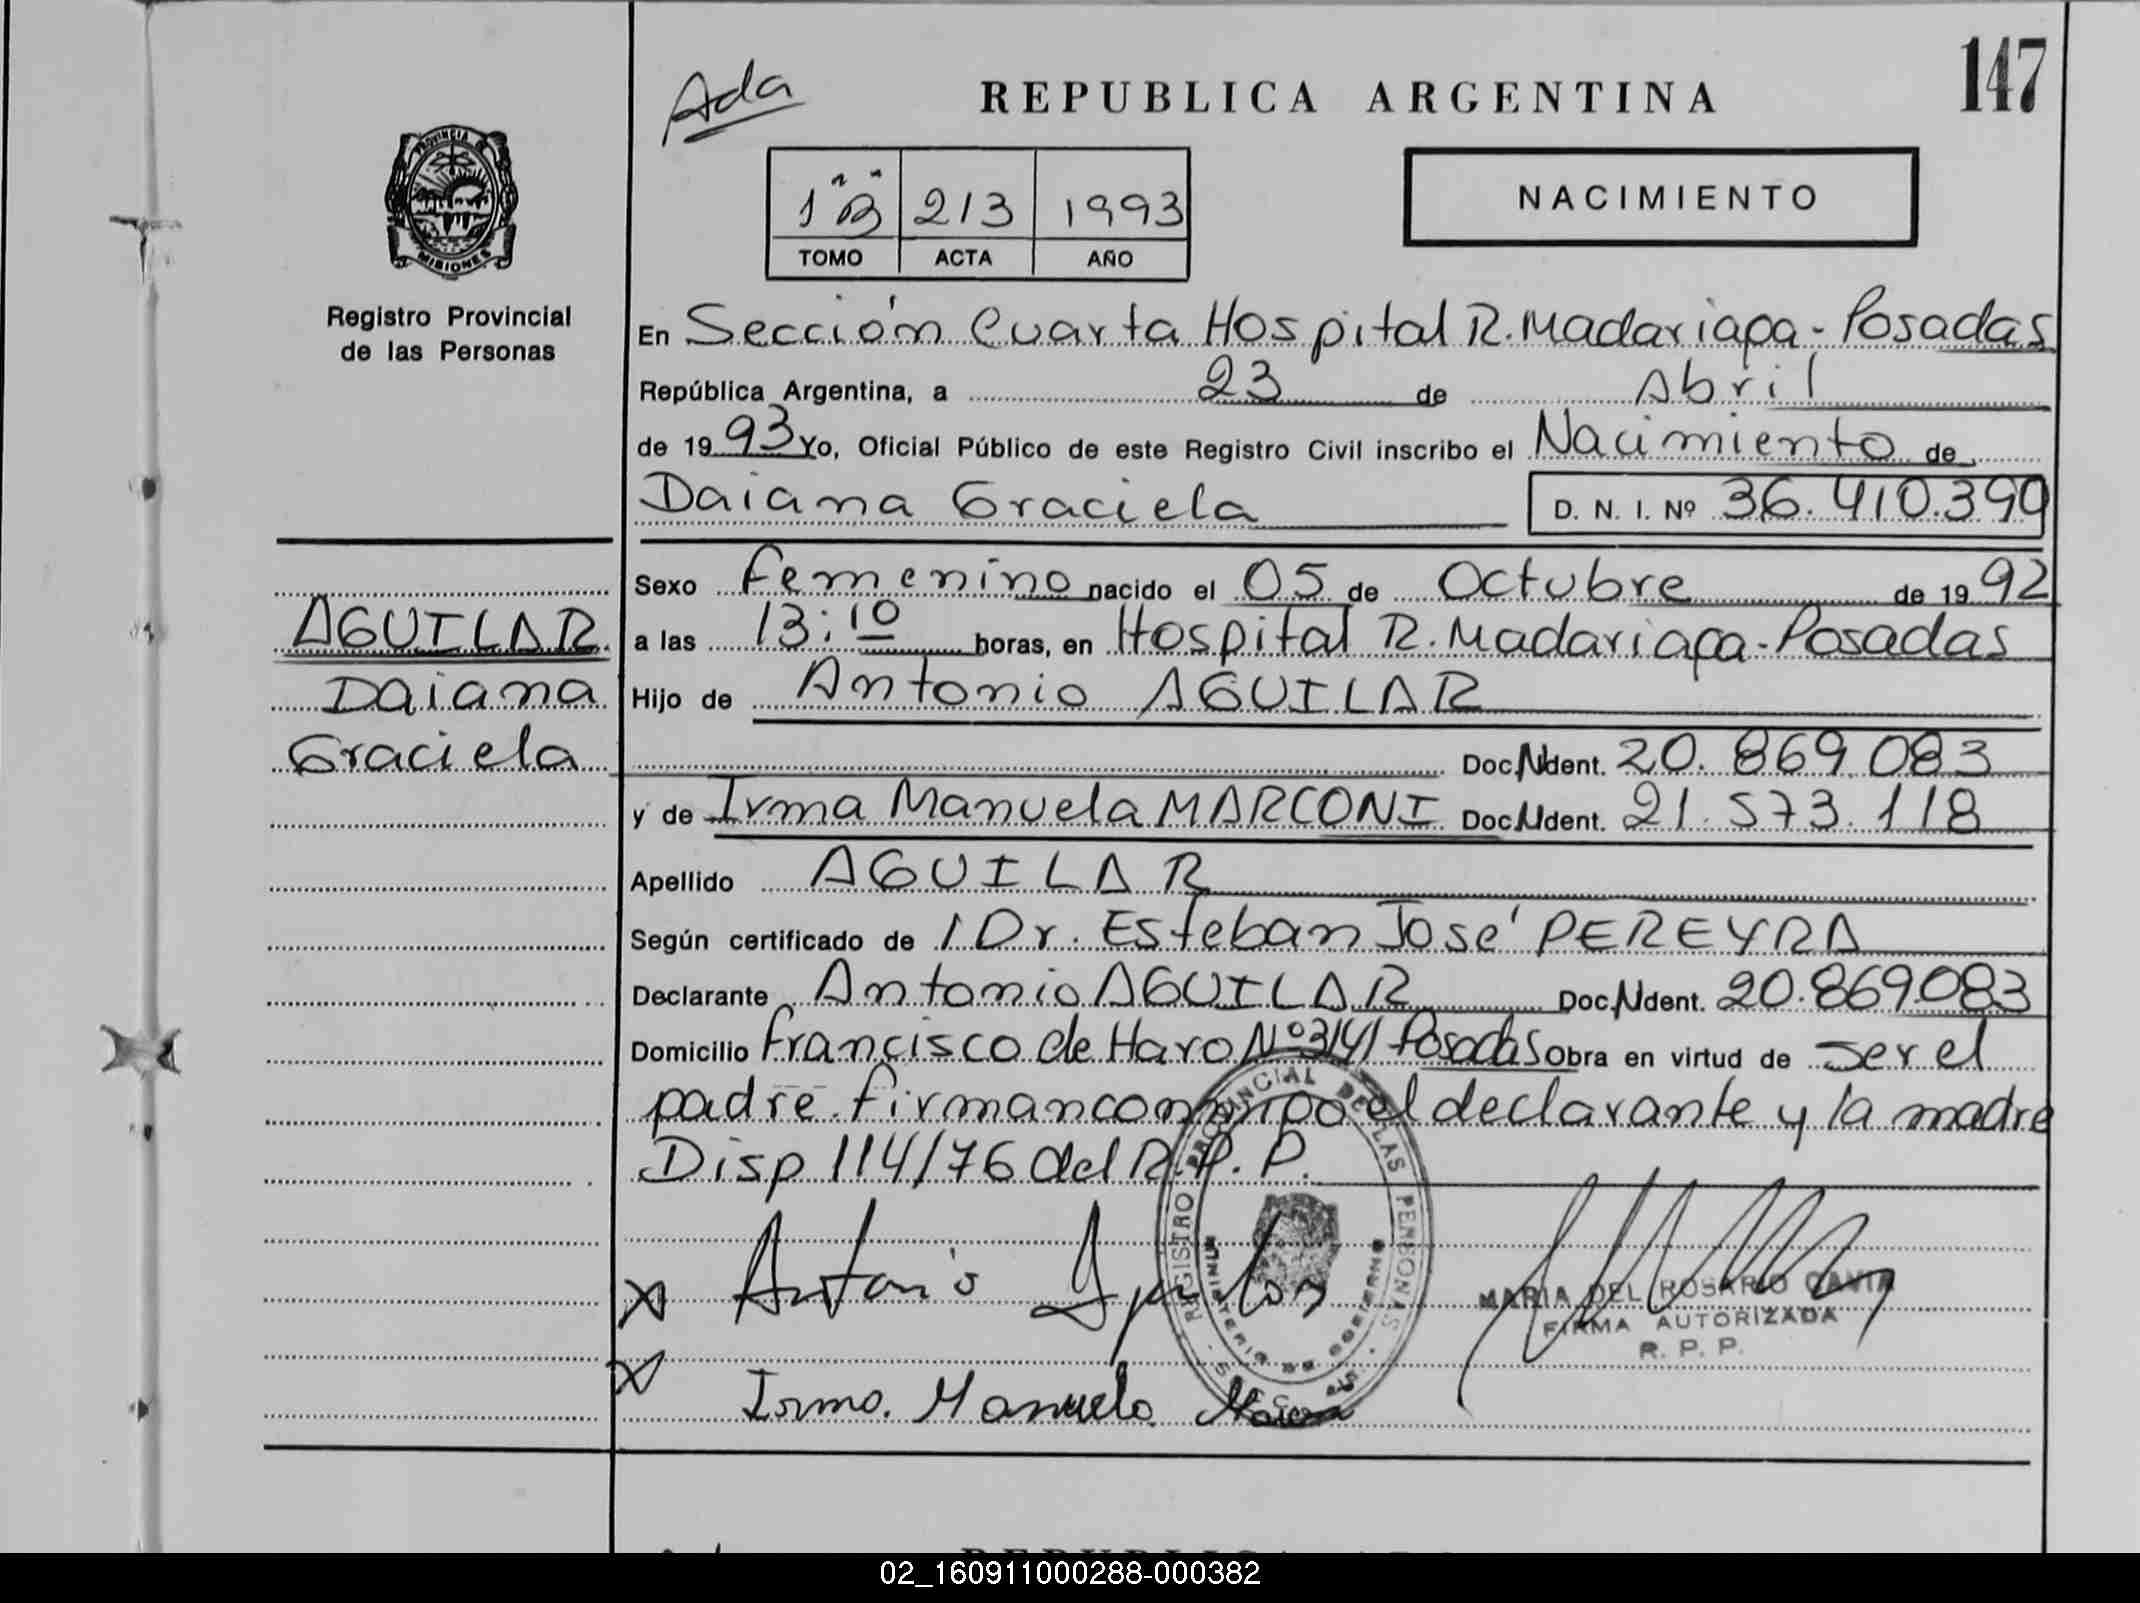 147
Ada
REPUBLICA ARGENTINA
PROVINCIA DE
MISIONES
1 "B" 213 1993
TOMO ACTA AÑO
NACIMIENTO
Registro Provincial
de las Personas
En Sección Cuarta Hospital R. Madariaga - Posadas
República Argentina, a 23 de Abril
de 1993 Yo, Oficial Público de este Registro Civil inscribo el Nacimiento de
Daiana Graciela D. N. I. Nº 36.410.390
Sexo Femenino nacido el 05 de Octubre de 1992
AGUILAR
a las 13:10 horas, en Hospital R. Madariaga - Posadas
Daiana
Hijo de Antonio AGUILAR
Graciela
Doc. N Ident. 20.869.083
y de Irma Manuela MARCONI Doc. N Ident. 21.573.118
Apellido AGUILAR
Según certificado de / Dr. Esteban José PEREYRA
Declarante Antonio AGUILAR Doc. N Ident. 20.869.083
Domicilio Francisco de Haro Nº 3141 Posadas Obra en virtud de ser el
padre. Firman conmigo el declarante y la madre
Disp 114/76 del R.P.P.
REGISTRO PROVINCIAL DE LAS PERSONAS
MINISTERIO DE GOBIERNO
X Antonio
MARIA DEL ROSARIO
FIRMA AUTORIZADA
R. P. P.
X Irma Manuela
02_160911000288-000382